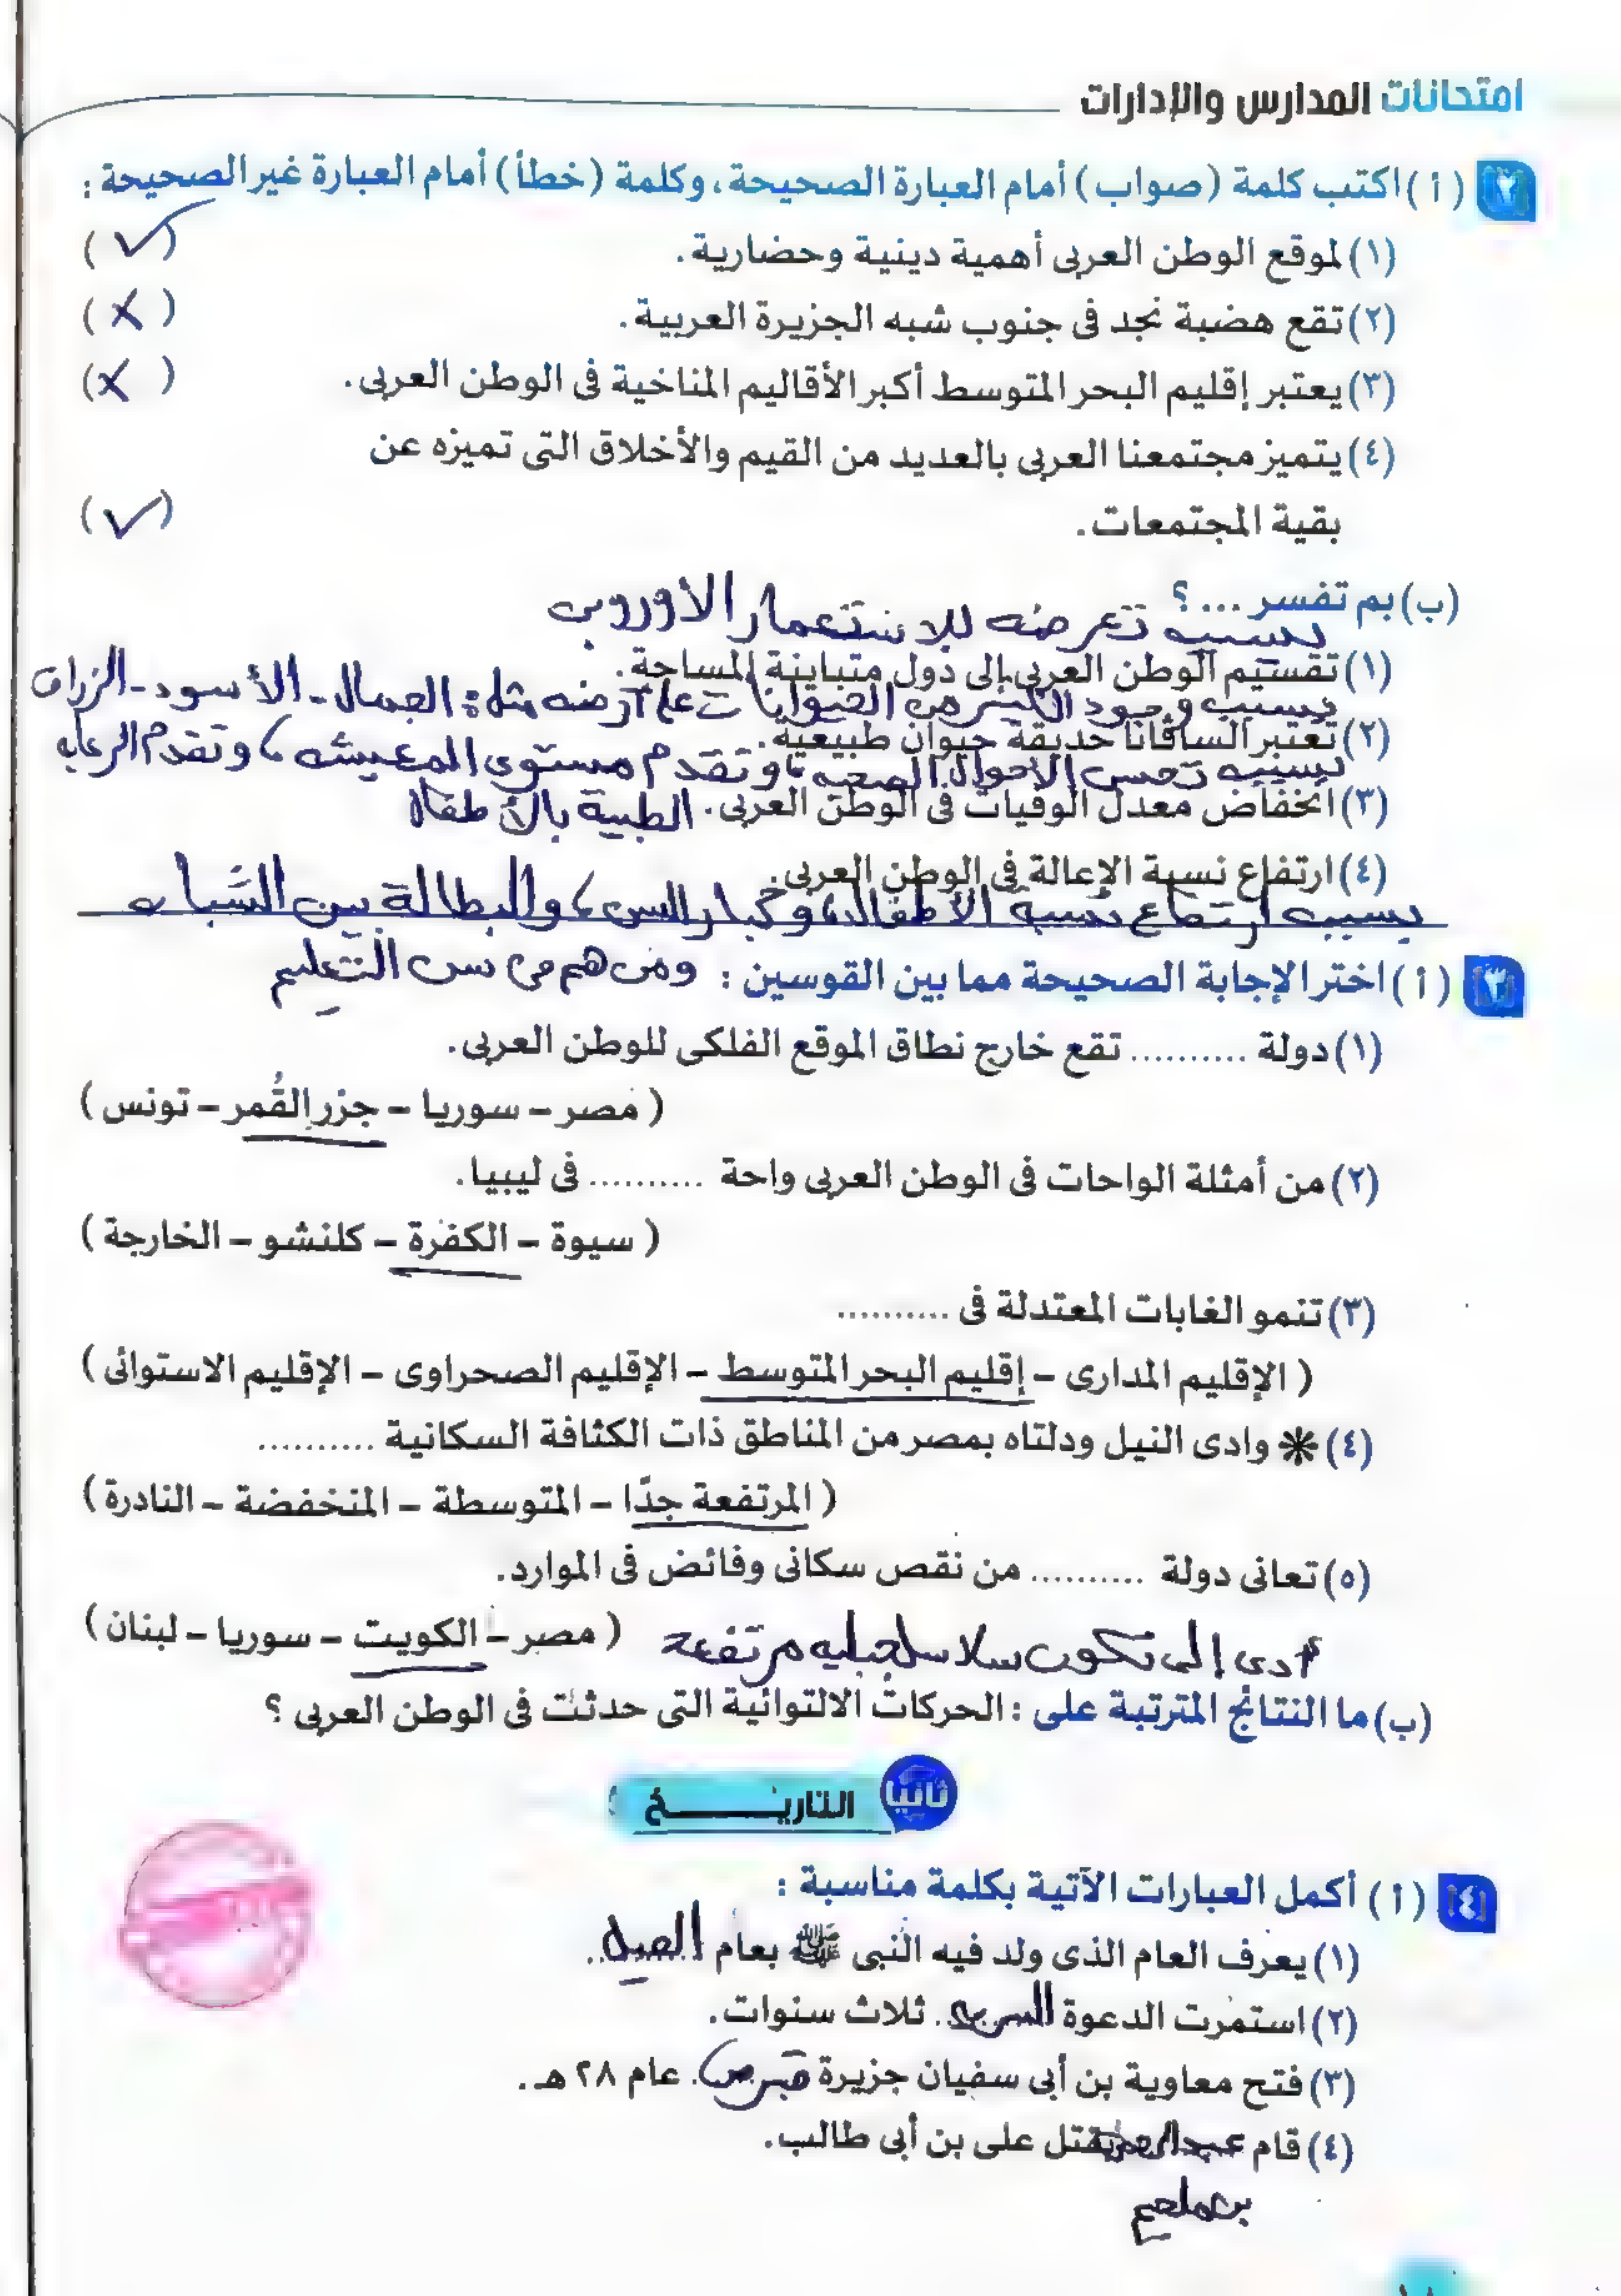 امتحانات المدارس والإدارات
٢ ( أ ) اكتب كلمة (صواب) أمام العبارة الصحيحة، وكلمة (خطأ) أمام العبارة غير الصحيحة :
(١) لموقع الوطن العربى أهمية دينية وحضارية. ( ✓ )
(٢) تقع هضبة نجد فى جنوب شبه الجزيرة العربية. ( X )
(٣) يعتبر إقليم البحر المتوسط أكبر الأقاليم المناخية فى الوطن العربى. ( X )
(٤) يتميز مجتمعنا العربى بالعديد من القيم والأخلاق التى تميزه عن
بقية المجتمعات. ( ✓ )
(ب) بم تفسر ... ؟
بسبب تعرضه للاستعمار الأوروبى
(١) تقسيم الوطن العربى إلى دول متباينة المساحة.
بسبب وجود الكثير من الحيوانات على أرضه مثل : الجمال - الأسود - الزراف
(٢) تعتبر السافانا حديقة حيوان طبيعية.
بسبب تحسن الأحوال الصحيه، وتقدم مستوى المعيشه، وتقدم الرعايه
(٣) انخفاض معدل الوفيات فى الوطن العربى. الطبية بالأطفال
(٤) ارتفاع نسبة الإعالة فى الوطن العربى.
بسبب ارتفاع نسبة الأطفال، وكبار السن، والبطالة بين الشباب
٣ ( أ ) اختر الإجابة الصحيحة مما بين القوسين : ومن هم فى سن التعليم
(١) دولة .......... تقع خارج نطاق الموقع الفلكى للوطن العربى.
( مصر - سوريا - جزر القُمر - تونس )
(٢) من أمثلة الواحات فى الوطن العربى واحة .......... فى ليبيا.
( سيوة - الكفرة - كلنشو - الخارجة )
(٣) تنمو الغابات المعتدلة فى ..........
( الإقليم المدارى - إقليم البحر المتوسط - الإقليم الصحراوى - الإقليم الاستوائى )
(٤) ✻ وادى النيل ودلتاه بمصر من المناطق ذات الكثافة السكانية ..........
( المرتفعة جدًا - المتوسطة - المنخفضة - النادرة )
(٥) تعانى دولة .......... من نقص سكانى وفائض فى الموارد.
( مصر - الكويت - سوريا - لبنان )
أدى إلى تكون سلاسل جبليه مرتفعة
(ب) ما النتائج المترتبة على : الحركات الالتوائية التى حدثت فى الوطن العربى ؟
ثانيا التاريخ
٤ ( أ ) أكمل العبارات الآتية بكلمة مناسبة :
(١) يعرف العام الذى ولد فيه النبى ﷺ بعام الفيل.
(٢) استمرت الدعوة السريه. ثلاث سنوات.
(٣) فتح معاوية بن أبى سفيان جزيرة قبرص. عام ٢٨ هـ.
(٤) قام عبدالرحمن بقتل على بن أبى طالب.
بن ملجم